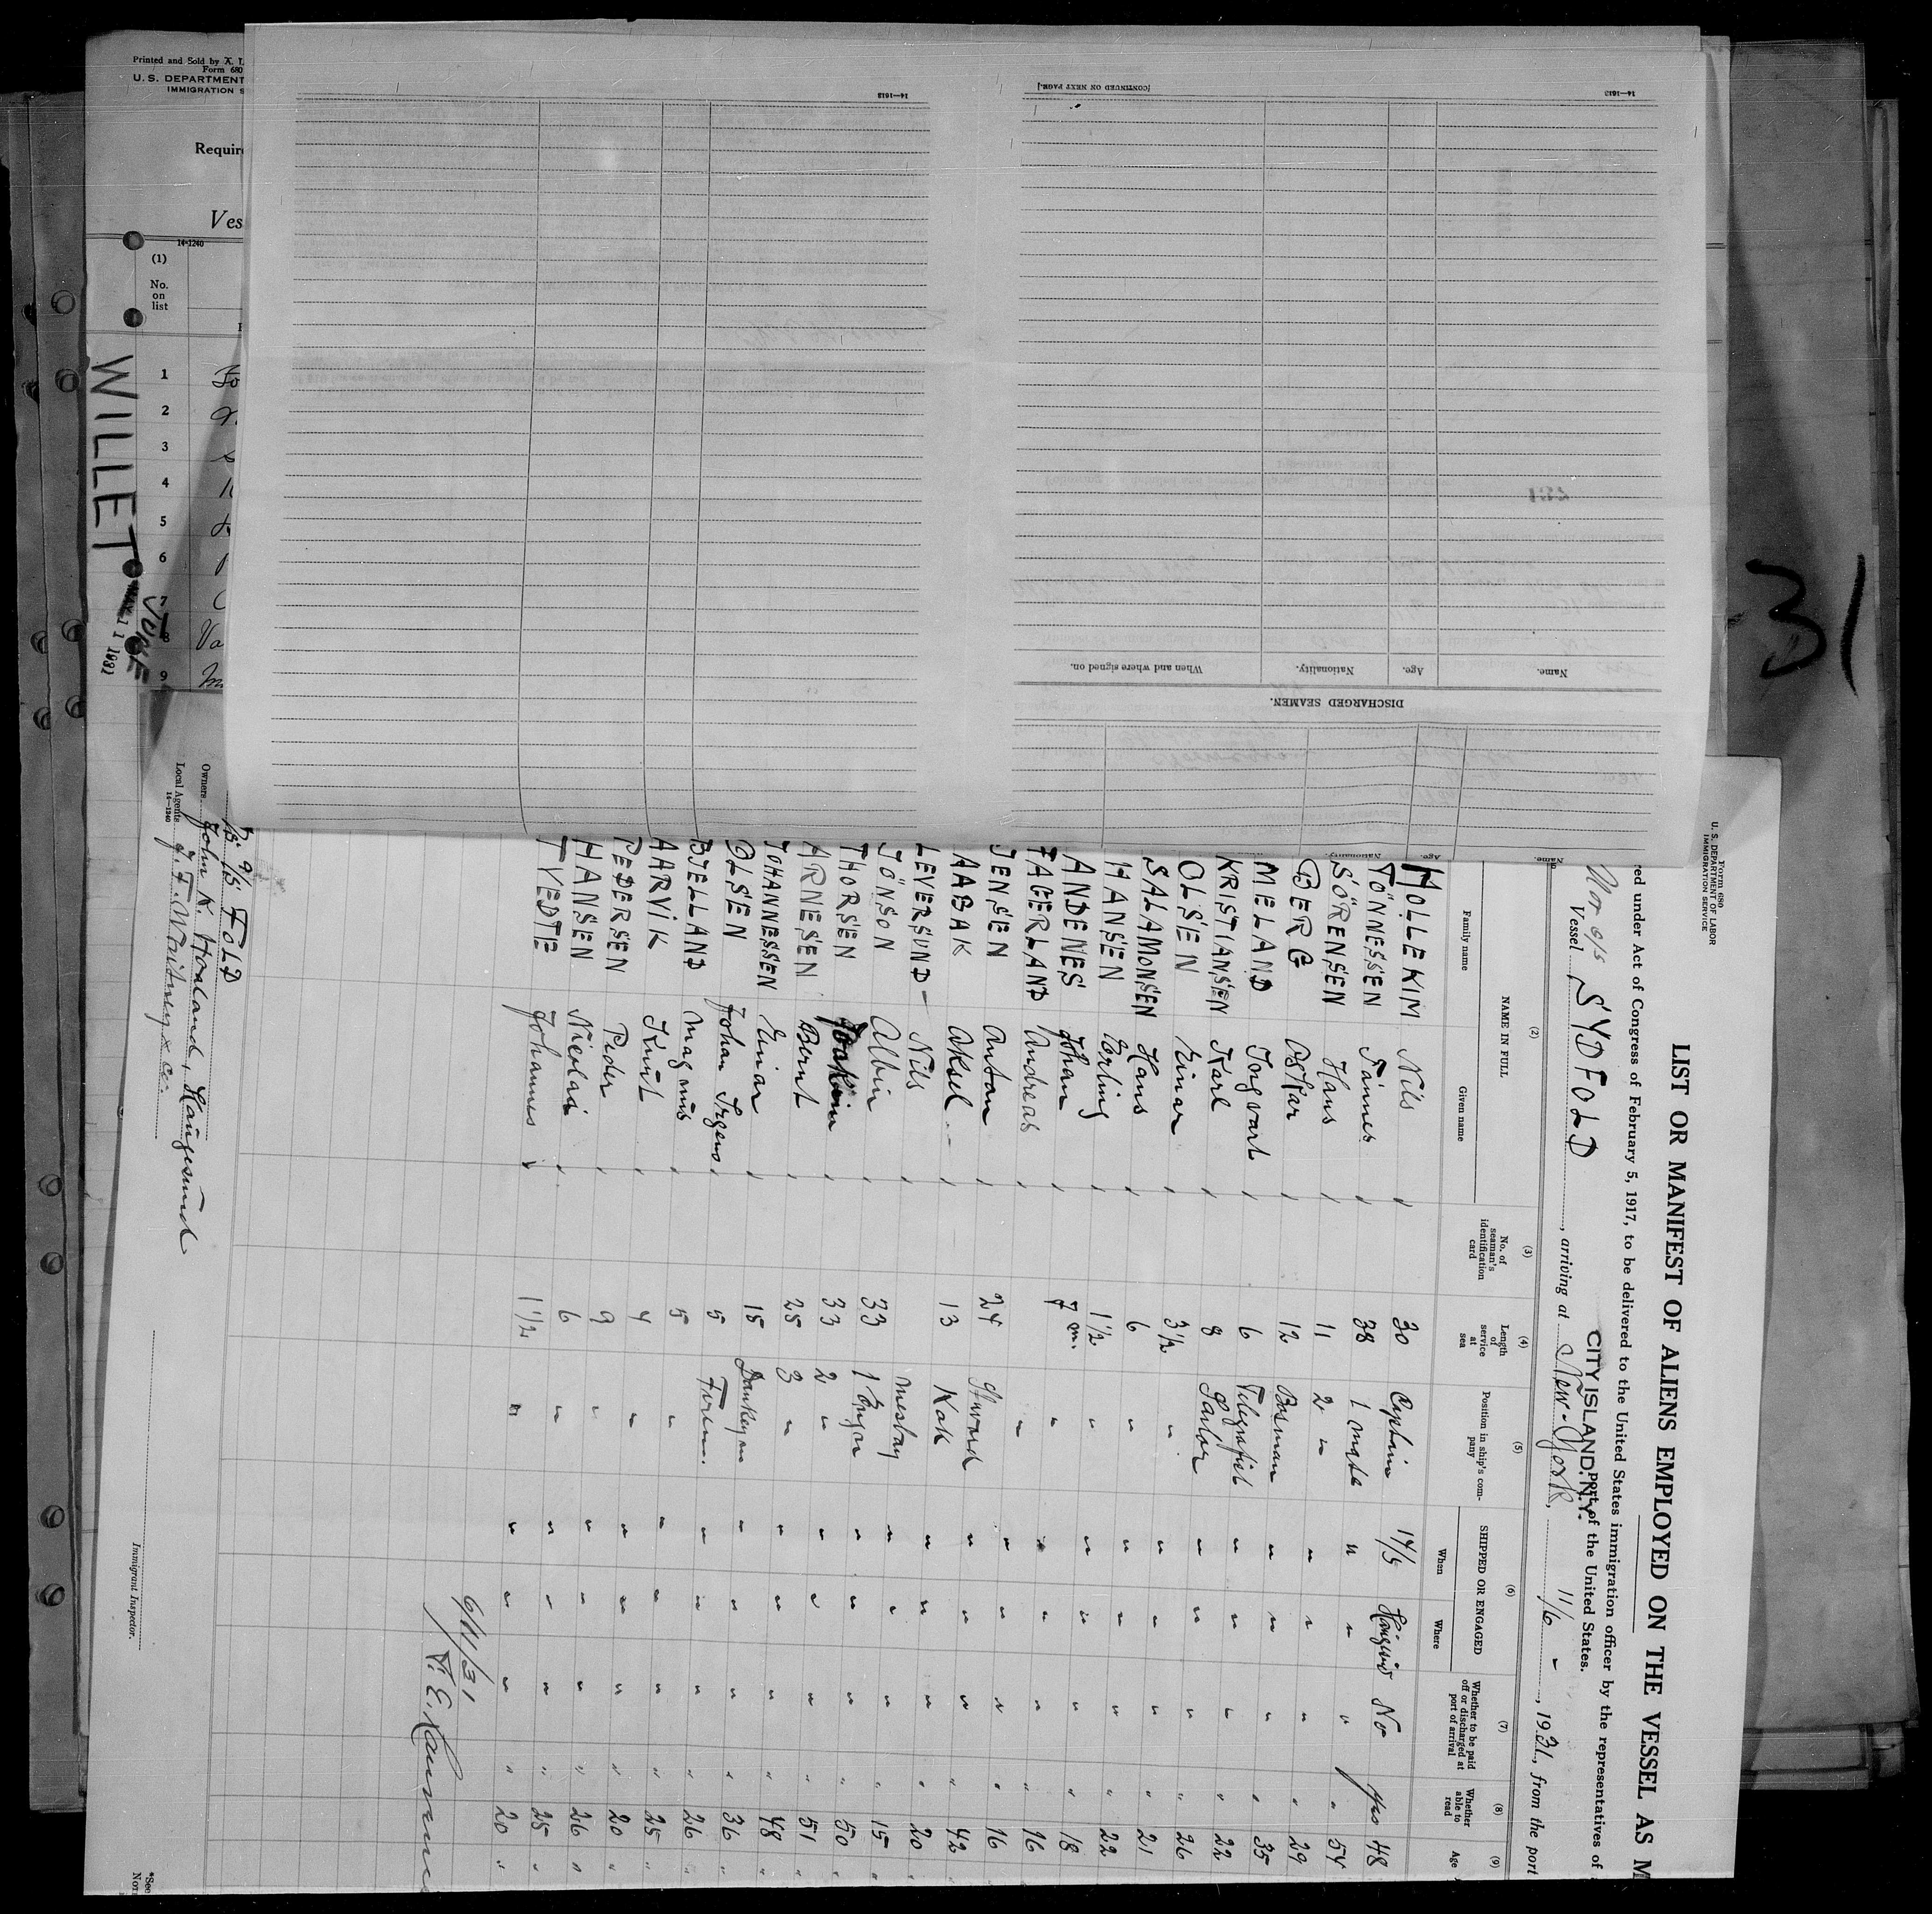 Form 680
U. S. DEPARTMENT OF LABOR
IMMIGRATION SERVICE
LIST OR MANIFEST OF ALIENS EMPLOYED ON THE VESSEL AS M
ed under Act of Congress of February 5, 1917, to be delivered to the United States immigration officer by the representatives of
Nor s/s
Vessel SYDFOLD, arriving at New-York, 11/6 - , 1931, from the port
CITY ISLAND, N.Y.
Port of the United States.
(2) (3) (4) (5) (6) (7) (8) (9)
NAME IN FULL
Family name Given name
No. of seaman's identification card
Length of service at sea
Position in ship's company
SHIPPED OR ENGAGED
When Where
Whether to be paid off or discharged at port of arrival
Whether able to read
Age
HOLLEKIM Nils 30 14/5 No yes 48
TÖNNESSEN 38 1 mate " " " " 54
SÖRENSEN Hans 11 2 " " " " " 29
BERG Oskar 12 Bosman " " " " 35
MELAND Ingvart 6 Telegrafist " " " " 22
KRISTIANSEN Karl 8 " " " " 26
OLSEN Einar 3 1/2 " " " " " 21
SALAMONSEN Hans 6 " " " " " 22
HANSEN Erling 1 1/2 " " " " " 18
ANDENES Johan 7 m. " " " " " 16
FAGERLAND Andreas " " " " " 16
JENSEN Anton 24 " " " " 42
AABAK Aksel 13 Kok " " " " 20
LEVERSUND Nils " " " " 15
JÖNSON Albin 33 1 " " " " 50
THORSEN 33 2 " " " " " 51
ARNESEN Bernt 25 3 " " " " " 48
JOHANNESSEN Einar 15 " " " " 36
OLSEN Johan Irgens 5 " " " " 26
BJELLAND Magnus 5 " " " " " 25
AARVIK Knut 4 " " " " " 20
PEDERSEN Peder 9 " " " " " 26
HANSEN Nicolai 6 " " " " " 25
TVEDTE Johannes 1 1/2 " " " " " 20
6/11/31
S/S FOLD
Owners John K. Haaland, Haugesund
Local Agents J. F. Whitney & Co.
14—1240
Immigrant Inspector.
*See
NOTE
DISCHARGED SEAMEN.
Name. Age. Nationality. When and where signed on.
[CONTINUED ON NEXT PAGE.]
14—1613
14—1613
Name. Nationality. Age.
Printed and Sold by A. L.
Form 680
U. S. DEPARTMENT
IMMIGRATION S
Require
Ves
14-1240
(1)
No.
on
list
1
2
3
4
5
6
7
8 Va
9
WILLET
JUNE
31